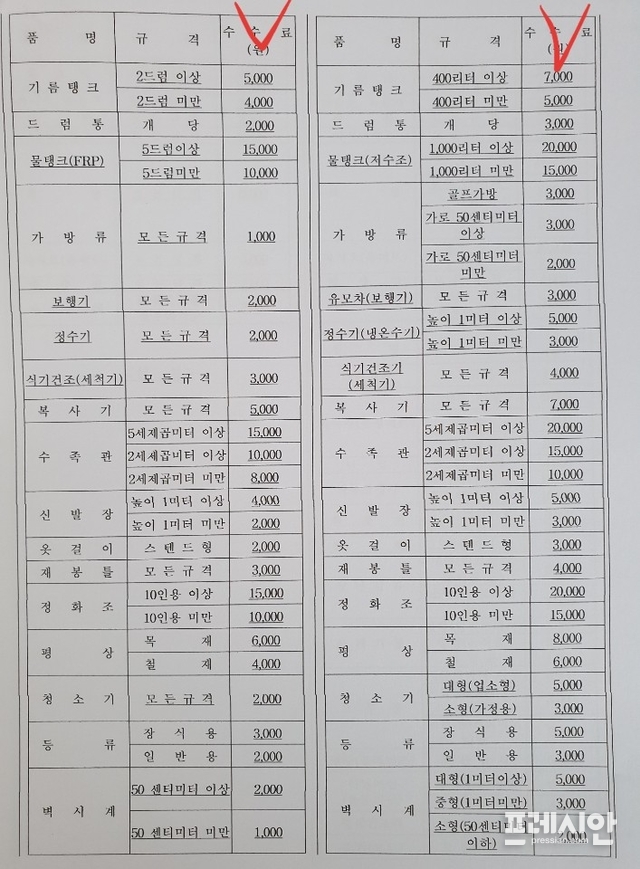 품 명 규 격 수 수 료 (원)
기 름 탱 크 2드럼 이상 5,000
2드럼 미만 4,000
드 럼 통 개 당 2,000
물탱크(FRP) 5드럼이상 15,000
5드럼미만 10,000
가 방 류 모 든 규 격 1,000
보행기 모 든 규 격 2,000
정수기 모 든 규 격 2,000
식기건조(세척기) 모 든 규 격 3,000
복 사 기 모 든 규 격 5,000
수 족 관 5세제곱미터 이상 15,000
2세제곱미터 이상 10,000
2세제곱미터 미만 8,000
신 발 장 높이 1미터 이상 4,000
높이 1미터 미만 2,000
옷 걸 이 스 텐 드 형 2,000
재 봉 틀 모 든 규 격 3,000
정 화 조 10인용 이상 15,000
10인용 미만 10,000
평 상 목 재 6,000
철 재 4,000
청 소 기 모 든 규 격 2,000
등 류 장 식 용 3,000
일 반 용 2,000
벽 시 계 50 센티미터 이상 2,000
50 센티미터 미만 1,000
품 명 규 격 수 수 료 (원)
기 름 탱 크 400리터 이상 7,000
400리터 미만 5,000
드 럼 통 개 당 3,000
물탱크(저수조) 1,000리터 이상 20,000
1,000리터 미만 15,000
가 방 류 골프가방 3,000
가로 50센티미터
이상 3,000
가로 50센티미터
미만 2,000
유모차(보행기) 모 든 규 격 3,000
정수기(냉온수기) 높이 1미터 이상 5,000
높이 1미터 미만 3,000
식기건조기
(세척기) 모 든 규 격 4,000
복 사 기 모 든 규 격 7,000
수 족 관 5세제곱미터 이상 20,000
2세제곱미터 이상 15,000
2세제곱미터 미만 10,000
신 발 장 높이 1미터 이상 5,000
높이 1미터 미만 3,000
옷 걸 이 스 텐 드 형 3,000
재 봉 틀 모 든 규 격 4,000
정 화 조 10인용 이상 20,000
10인용 미만 15,000
평 상 목 재 8,000
철 재 6,000
청 소 기 대형(업소형) 5,000
소형(가정용) 3,000
등 류 장 식 용 5,000
일 반 용 3,000
벽 시 계 대형(1미터이상) 5,000
중형(1미터미만) 3,000
소형(50센티미터
이하) 2,000
프레시안
pressian.com